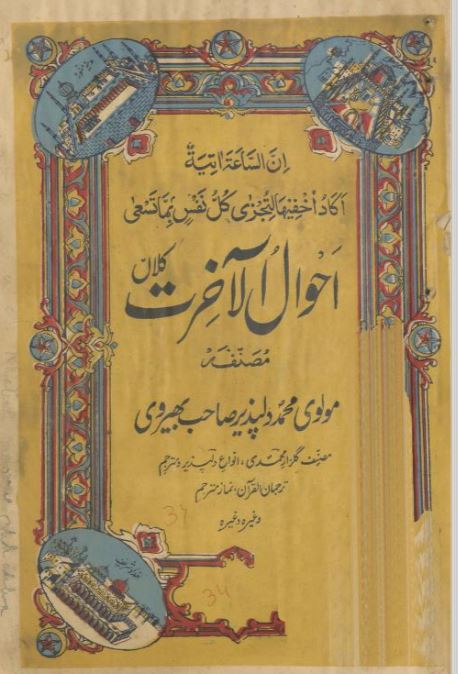 اِنَّ السَّاعَةَ اٰتِيَةٌ
اَكَادُ اُخْفِيْهَا لِتُجْزٰى كُلُّ نَفْسٍ بِمَا تَسْعٰى
اَحْوَالُ الْآخِرَت کلاں
مصنفہ
مولوی محمد دلپذیر صاحب بھیروی
مصنف گلزار محمدی، انواع دلپذیر و مترجم
ترجمان القرآن، نماز مترجم
وغیرہ وغیرہ
34
34